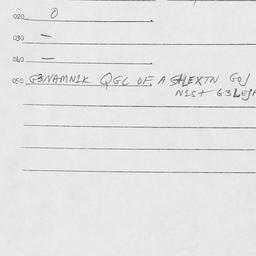 020 0
030 —
040 —
050 G3NAMN1K QGC OF A SHEXTN GOJ
N1S+ G3LEJA